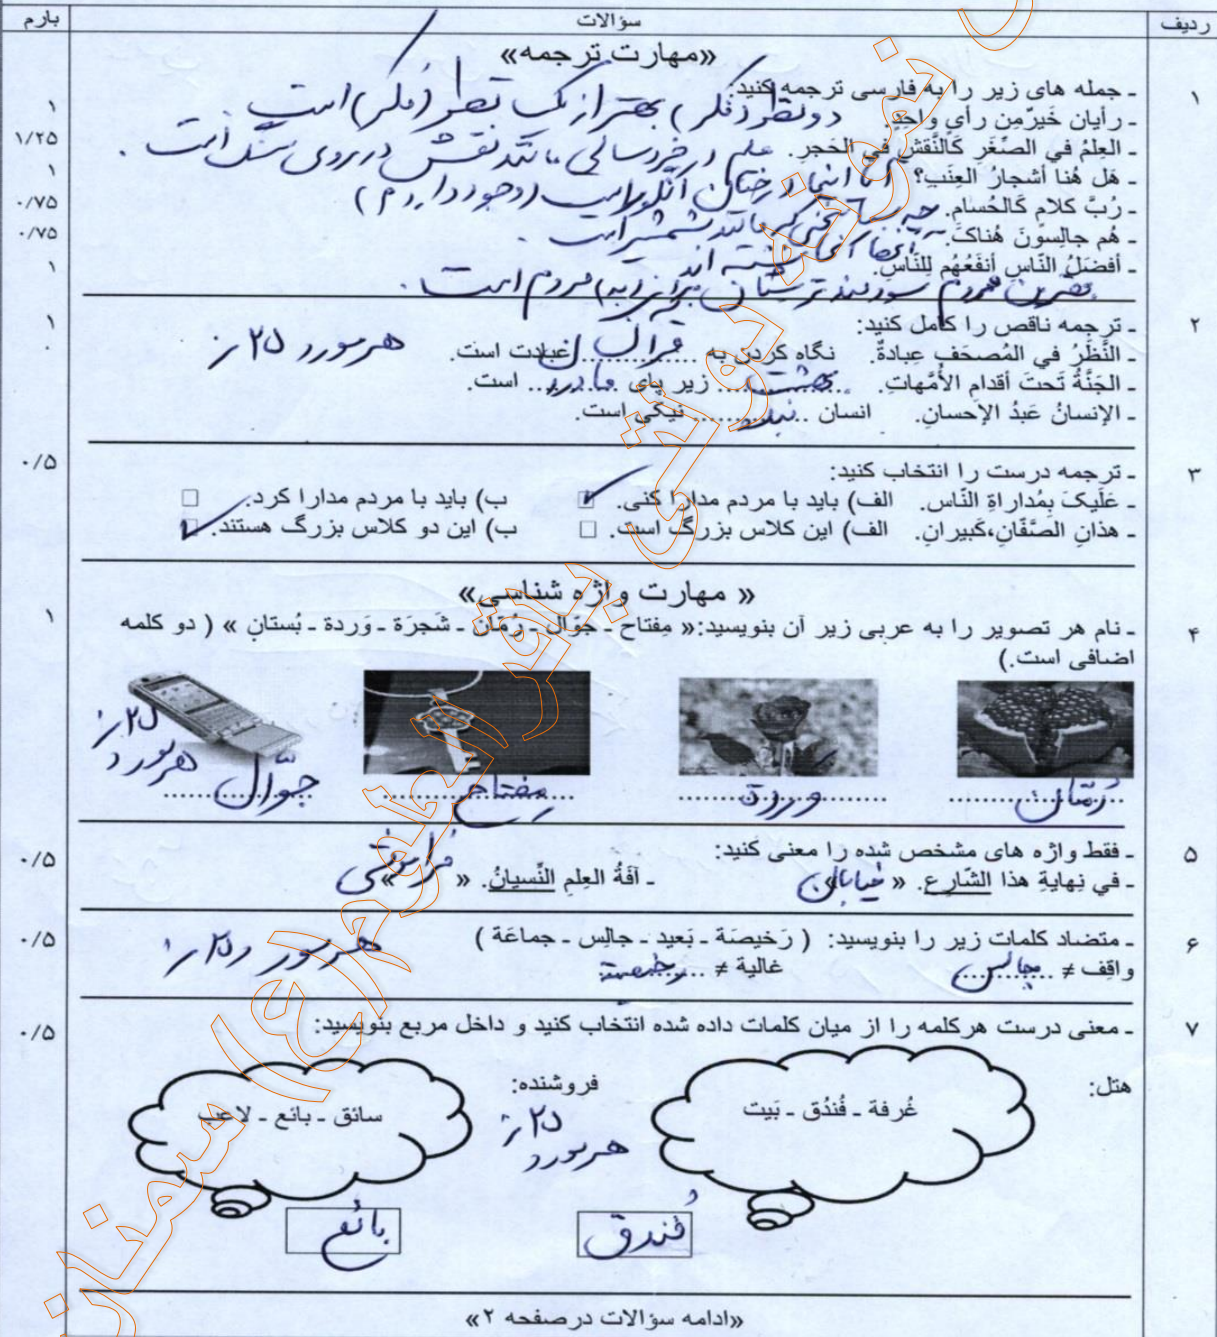 ردیف سؤالات بارم
«مهارت ترجمه»
۱ ـ جمله های زیر را به فارسی ترجمه کنید:
ـ رأیان خَیرٌمِن رأیٍ واحِدٍ. دو نظر (فکر) بهتر از یک نظر (فکر) است ۱
ـ العِلمُ في الصِّغَرِ کَالنَّقشِ في الحَجَرِ. علم در خردسالی مانند نقش در روی سنگ است. ۱/۲۵
ـ هَل هُنا أشجارُ العِنَبِ؟ آیا اینجا درختان انگور است (وجود دارد) ۱
ـ رُبَّ کَلامٍ کَالحُسامِ. چه بسا سخنی که مانند شمشیر است. ۰/۷۵
ـ هُم جالِسونَ هُناکَ. آنجا نشسته اند ۰/۷۵
ـ أفضَلُ النّاسِ أنفَعُهُم لِلنّاسِ. ۱
مردم سودمندترینشان برای مردم است.
۲ ـ ترجمه ناقص را کامل کنید: ۱
ـ النَّظَرُ في المُصحَفِ عِبادةٌ. نگاه کردن به قرآن عبادت است. هر مورد ۲۵/.
ـ الجَنَّةُ تَحتَ أقدامِ الأُمَّهاتِ. بهشت زیر پای مادران است.
ـ الإنسانُ عَبدُ الإحسانِ. انسان بنده نیکی است.
۳ ـ ترجمه درست را انتخاب کنید: ۰/۵
ـ عَلَیکَ بِمُداراةِ النّاس. الف) باید با مردم مدارا کنی. ☑ ب) باید با مردم مدارا کرد. □
ـ هذانِ الصَّفّانِ،کَبیرانِ. الف) این کلاس بزرگ است. □ ب) این دو کلاس بزرگ هستند. ☑
« مهارت واژه شناسی»
۴ ـ نام هر تصویر را به عربی زیر آن بنویسید:« مِفتاح ـ جَوّال ـ رُمّان ـ شَجَرَة ـ وَردة ـ بُستانِ » ( دو کلمه ۱
اضافی است.)
رُمّان وردة مِفتاح جوّال هر مورد ۲۵/.
۵ ـ فقط واژه های مشخص شده را معنی کنید: ۰/۵
ـ في نِهایةِ هذا الشّارِع. « خیابان» ـ آفَةُ العِلمِ النِّسیانُ. « فراموشی»
۶ ـ متضاد کلمات زیر را بنویسید: ( رَخیصَة ـ بَعید ـ جالِس ـ جماعَة ) هر مورد ۲۵/. ۰/۵
واقِف ≠ جالس غالیة ≠ رخیصة
۷ ـ معنی درست هرکلمه را از میان کلمات داده شده انتخاب کنید و داخل مربع بنویسید: ۰/۵
هتل: غُرفة ـ فُندُق ـ بَیت فروشنده: سائق ـ بائع ـ لاعِب
۲۵/. هر مورد
فُندق بائع
«ادامه سؤالات درصفحه ۲»